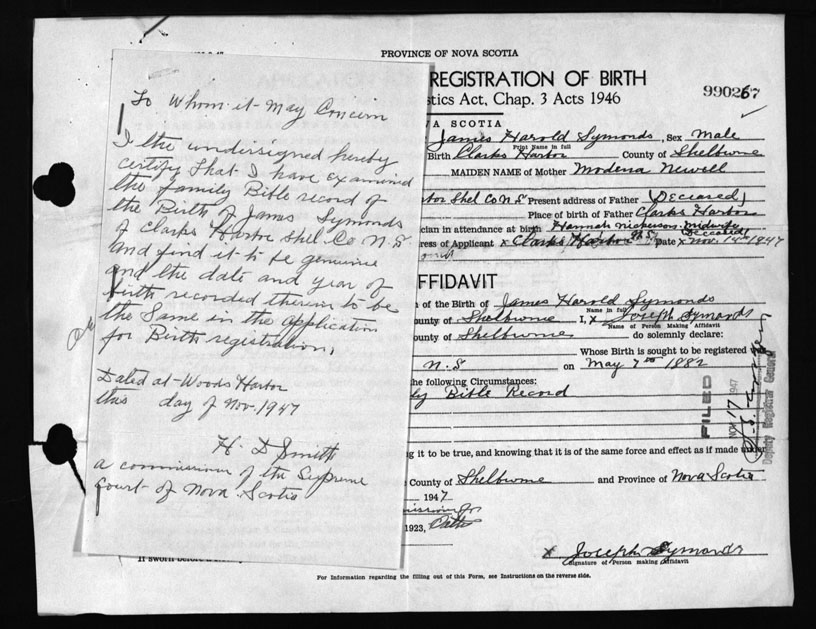 PROVINCE OF NOVA SCOTIA
REGISTRATION OF BIRTH
990267
stics Act, Chap. 3 Acts 1946
VA SCOTIA
James Harold Symonds, Sex Male
Print Name in full
Birth Clarks Harbor County of Shelburne
MAIDEN NAME of Mother Modena Newell
rbor Shel Co N.S Present address of Father (Deceased)
Place of birth of Father Clarks Harbor
cian in attendance at birth Hannah Nickerson Midwife
(Deceased)
ress of Applicant x Clarks Harbor N.S. Date x Nov. 14th 1947
AFFIDAVIT
n of the Birth of James Harold Symonds
Name in full
ounty of Shelburne I, x Joseph Symonds
Name of Person Making Affidavit
ounty of Shelburne do solemnly declare:
Whose Birth is sought to be registered
N. S on May 7th 1882
the following Circumstances:
ly Bible Record
g it to be true, and knowing that it is of the same force and effect as if made under
County of Shelburne and Province of Nova Scotia
1947
1923, Oaths
x Joseph Symonds
Signature of Person making Affidavit
If sworn before a
For Information regarding the filling out of this Form, see Instructions on the reverse side.
FILED
NOV 17 1947
Deputy Registrar General
To Whom it May Concern
I the undersigned hereby
certify that I have examined
the family Bible record of
the Birth of James Symonds
of Clarks Harbor Shel. Co N.S
and find it to be genuine
and the date and year of
birth recorded therein to be
the Same in the application
for Birth registration,
Dated at Woods Harbor
this day of Nov. 1947
H. D Smith
a commissioner of the Supreme
Court of Nova Scotia